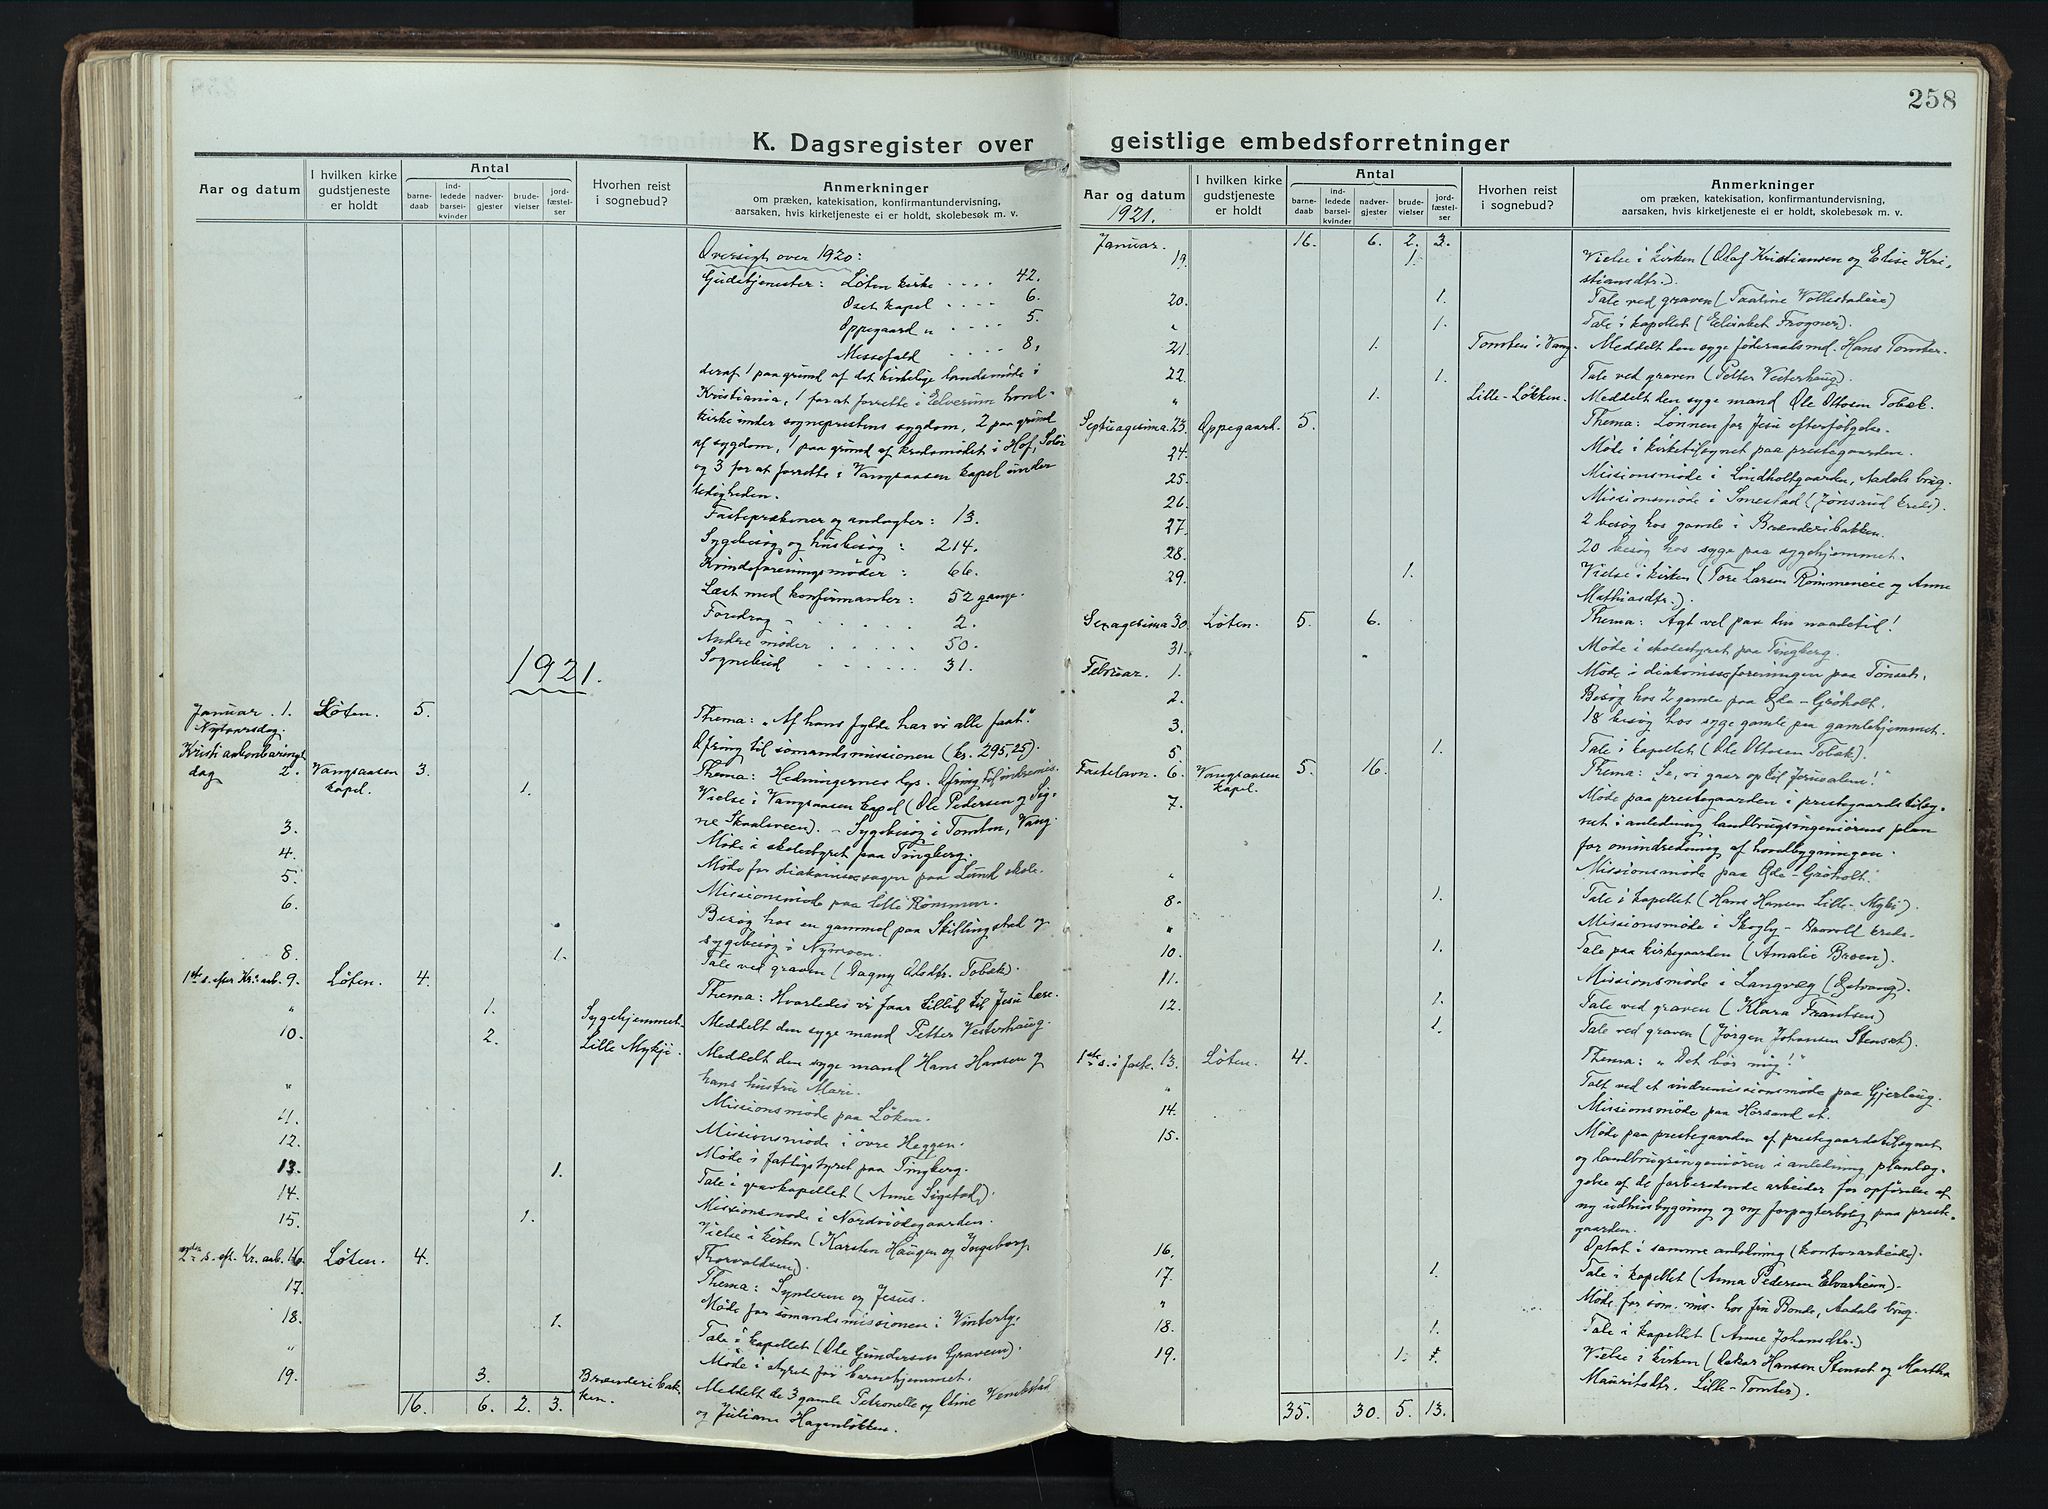 258
K. Dagsregister over geistlige embedsforretninger
Aar og datum
I hvilken kirke gudstjeneste er holdt
Antal
barne-daab
ind-ledede barsel-kvinder
nadver-gjester
brude-vielser
jord-fæstel-ser
Hvorhen reist i sognebud?
Anmerkninger
om præken, katekisation, konfirmantundervisning,
aarsaken, hvis kirketjeneste ei er holdt, skolebesøk m. v.
Oversigt over 1920:
Gudstjenester: Løten kirke .... 42.
Oset kapel .... 6.
Oppegaard " .... 5.
Messefald .... 8,
deraf 1 paa grund af det kirkelige landsmøde i
Kristiania, 1 for at forrette i Elverum hoved-
kirke under sogneprestens sygdom, 2 paa grund
af sygdom, 1 paa grund af kredsmødet i Hof, Solør
og 3 for at forrette i Vangsaasen kapel under
ledigheden.
Fasteprækener og andagter: 13.
Sygebesøg og husbesøg: 214.
Kvindeforeningsmøder: 66.
Læst med konfirmanter: 52 gange.
Foredrag 2.
Andre møder ..... 50.
Sognebud ..... 31.
1921.
Januar 1. Løten. 5. Thema: "Af hans fylde har vi alle faat".
Nytaarsdag. Ofring til sømandsmissionen (kr. 295.25).
Kristi aabenbarings
dag 2. Vangsaasen kapel. 3. Thema: Hedningernes lys. Ofring til indremis.
1. Vielse i Vangsaasen kapel (Ole Pedersen og Sig-
3. ne Skaalsveen). - Sygebesøg i Tomten, Vang.
4. Møde i skolestyret paa Tingberg.
5. Møde for diakonissesagen paa Lund skole.
6. Missionsmøde paa lille Rømmen.
Besøg hos en gammel paa Skillingstad og
sygebesøg i Nymoen.
8. 1. Tale ved graven (Dagny Olsdtr. Tobæk).
1ste s. efter Kr. aab. 9. Løten. 4. Thema: Hvorledes vi faar tillid til Jesu lære.
" 1. Sygehjemmet. Meddelt den syge mand Petter Vesterhaug.
10. 2. Lille Mykje. Meddelt den syge mand Hans Hansen og
hans hustru Mari.
" Missionsmøde paa Løken.
11. Missionsmøde i øvre Heggen.
12. Møde i fattigstyret paa Tingberg.
13. 1. Tale i gravkapellet (Anne Sigstad).
14. Missionsmøde i Nordviødegaarden.
15. 1. Vielse i kirken (Karsten Haugen og Ingeborg
Thorvaldsen).
2den s. eft. Kr. aab. 16. Løten. 4. Thema: Synderen og Jesus.
17. Møde for sømandsmissionen i Vinterly.
18. 1. Tale i kapellet (Ole Gundersen Graveem).
" Møde i styret for barnehjemmet.
19. 3. Brænderibakken. Meddelt de 3 gamle Petronelle og Oline Venkstad
og Juliane Hagenløkken.
16. 6. 2. 3.
Aar og datum
1921.
I hvilken kirke gudstjeneste er holdt
Antal
barne-daab
ind-ledede barsel-kvinder
nadver-gjester
brude-vielser
jord-fæstel-ser
Hvorhen reist i sognebud?
Anmerkninger
om præken, katekisation, konfirmantundervisning,
aarsaken, hvis kirketjeneste ei er holdt, skolebesøk m. v.
Januar. 16. 6. 2. 3.
19. 1. Vielse i kirken (Olaf Kristiansen og Elise Kri-
stiansdtr.).
20. 1. Tale ved graven (Taaline Vollestadeie)
" 1. Tale i kapellet (Elisabet Frogner).
21. 1. Tomten i Vang. Meddelt den syge føderaadsmd. Hans Tomter.
22. 1. Tale ved graven (Petter Vesterhaug).
" 1. Lille-Løkken. Meddelt den syge mand Ole Ottosen Tobæk.
Septuagesima. 23. Oppegaard. 5. Thema: Lønnen for Jesu efterfølgelse.
24. Møde i kirketilsynet paa prestegaarden.
25. Missionsmøde i Lindholtgaarden, Aadals brug.
26. Missionsmøde i Smestad (Jønsrud kreds).
27. 2 besøg hos gamle i Brænderibakken.
28. 20 besøg hos syge paa sygehjemmet.
29. 1. Vielse i kirken (Tore Larsen Rømmeneie og Anne
Mathiasdtr.).
Sexagesima 30. Løten. 5. 6. Thema: Agt vel paa din naadetid!
31. Møde i skolestyret paa Tingberg.
Februar. 1. Møde i diakonisseforeningen paa Tønset.
2. Besøg hos 2 gamle paa Øde-Grøholt.
3. 18 besøg hos syge gamle paa gamlehjemmet.
5 1. Tale i kapellet (Ole Ottosen Tobæk).
Fastelavn. 6. Vangsaasen kapel. 5. 16. Thema: Se, vi gaar op til Jerusalem!"
7. Møde paa prestegaarden i prestegaardstilsy-
net i anledning landbrugsingeniørens plan
for omindredning af hovedbygningen.
" Missionsmøde paa Øde-Grøholt.
8. 1. Tale i kapellet (Hans Hansen Lille-Mykje).
" Missionsmøde i Skogly - kreds.
10. 1. Tale paa kirkegaarden (Amalie Braaen).
11. Missionsmøde i Langvæg (Østvang).
12. 1. Tale ved graven (Klara Frantsen)
1. Tale ved graven (Jørgen Johansen Stenset).
1ste s. i faste. 13. Løten. 4. Thema: "Det bør mig!"
" Talt ved et indremissionsmøde paa Gjerlaug.
14. Missionsmøde paa Horsand st.
15. Møde paa prestegaarden af prestegaardstilsynet
og landbrugsingeniøren i anledning planlæg-
gelse af de forberedende arbeider for opførelse af
ny udhusbygning og ny forpagterbolig paa preste-
gaarden.
16. Optat i samme anledning (kontorarbeide).
17. 1. Tale i kapellet (Anna Pedersen Elvarheim).
" Møde for søm. mis. hos fru Bonde, Aadals brug.
18. 1. Tale i kapellet (Anne Johansdtr.)
19. 1. 1. Vielse i kirken (Oskar Hansen Stenset og Martha
Mauritsdtr. Lille-Tomter).
35. 30. 5. 13.